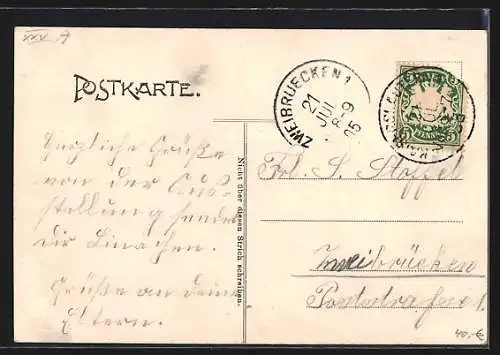 POSTKARTE.
ZWEIBRUECKEN 1
21 JUL
8-9
05
Herzliche Grüße
von der Auß-
stellung sendet
dir
Grüße an deine
Eltern.
Nicht über diesen Strich schreiben.
Frl. S. Stoffel
Zweibrücken
Poststraße 1.
40,-€